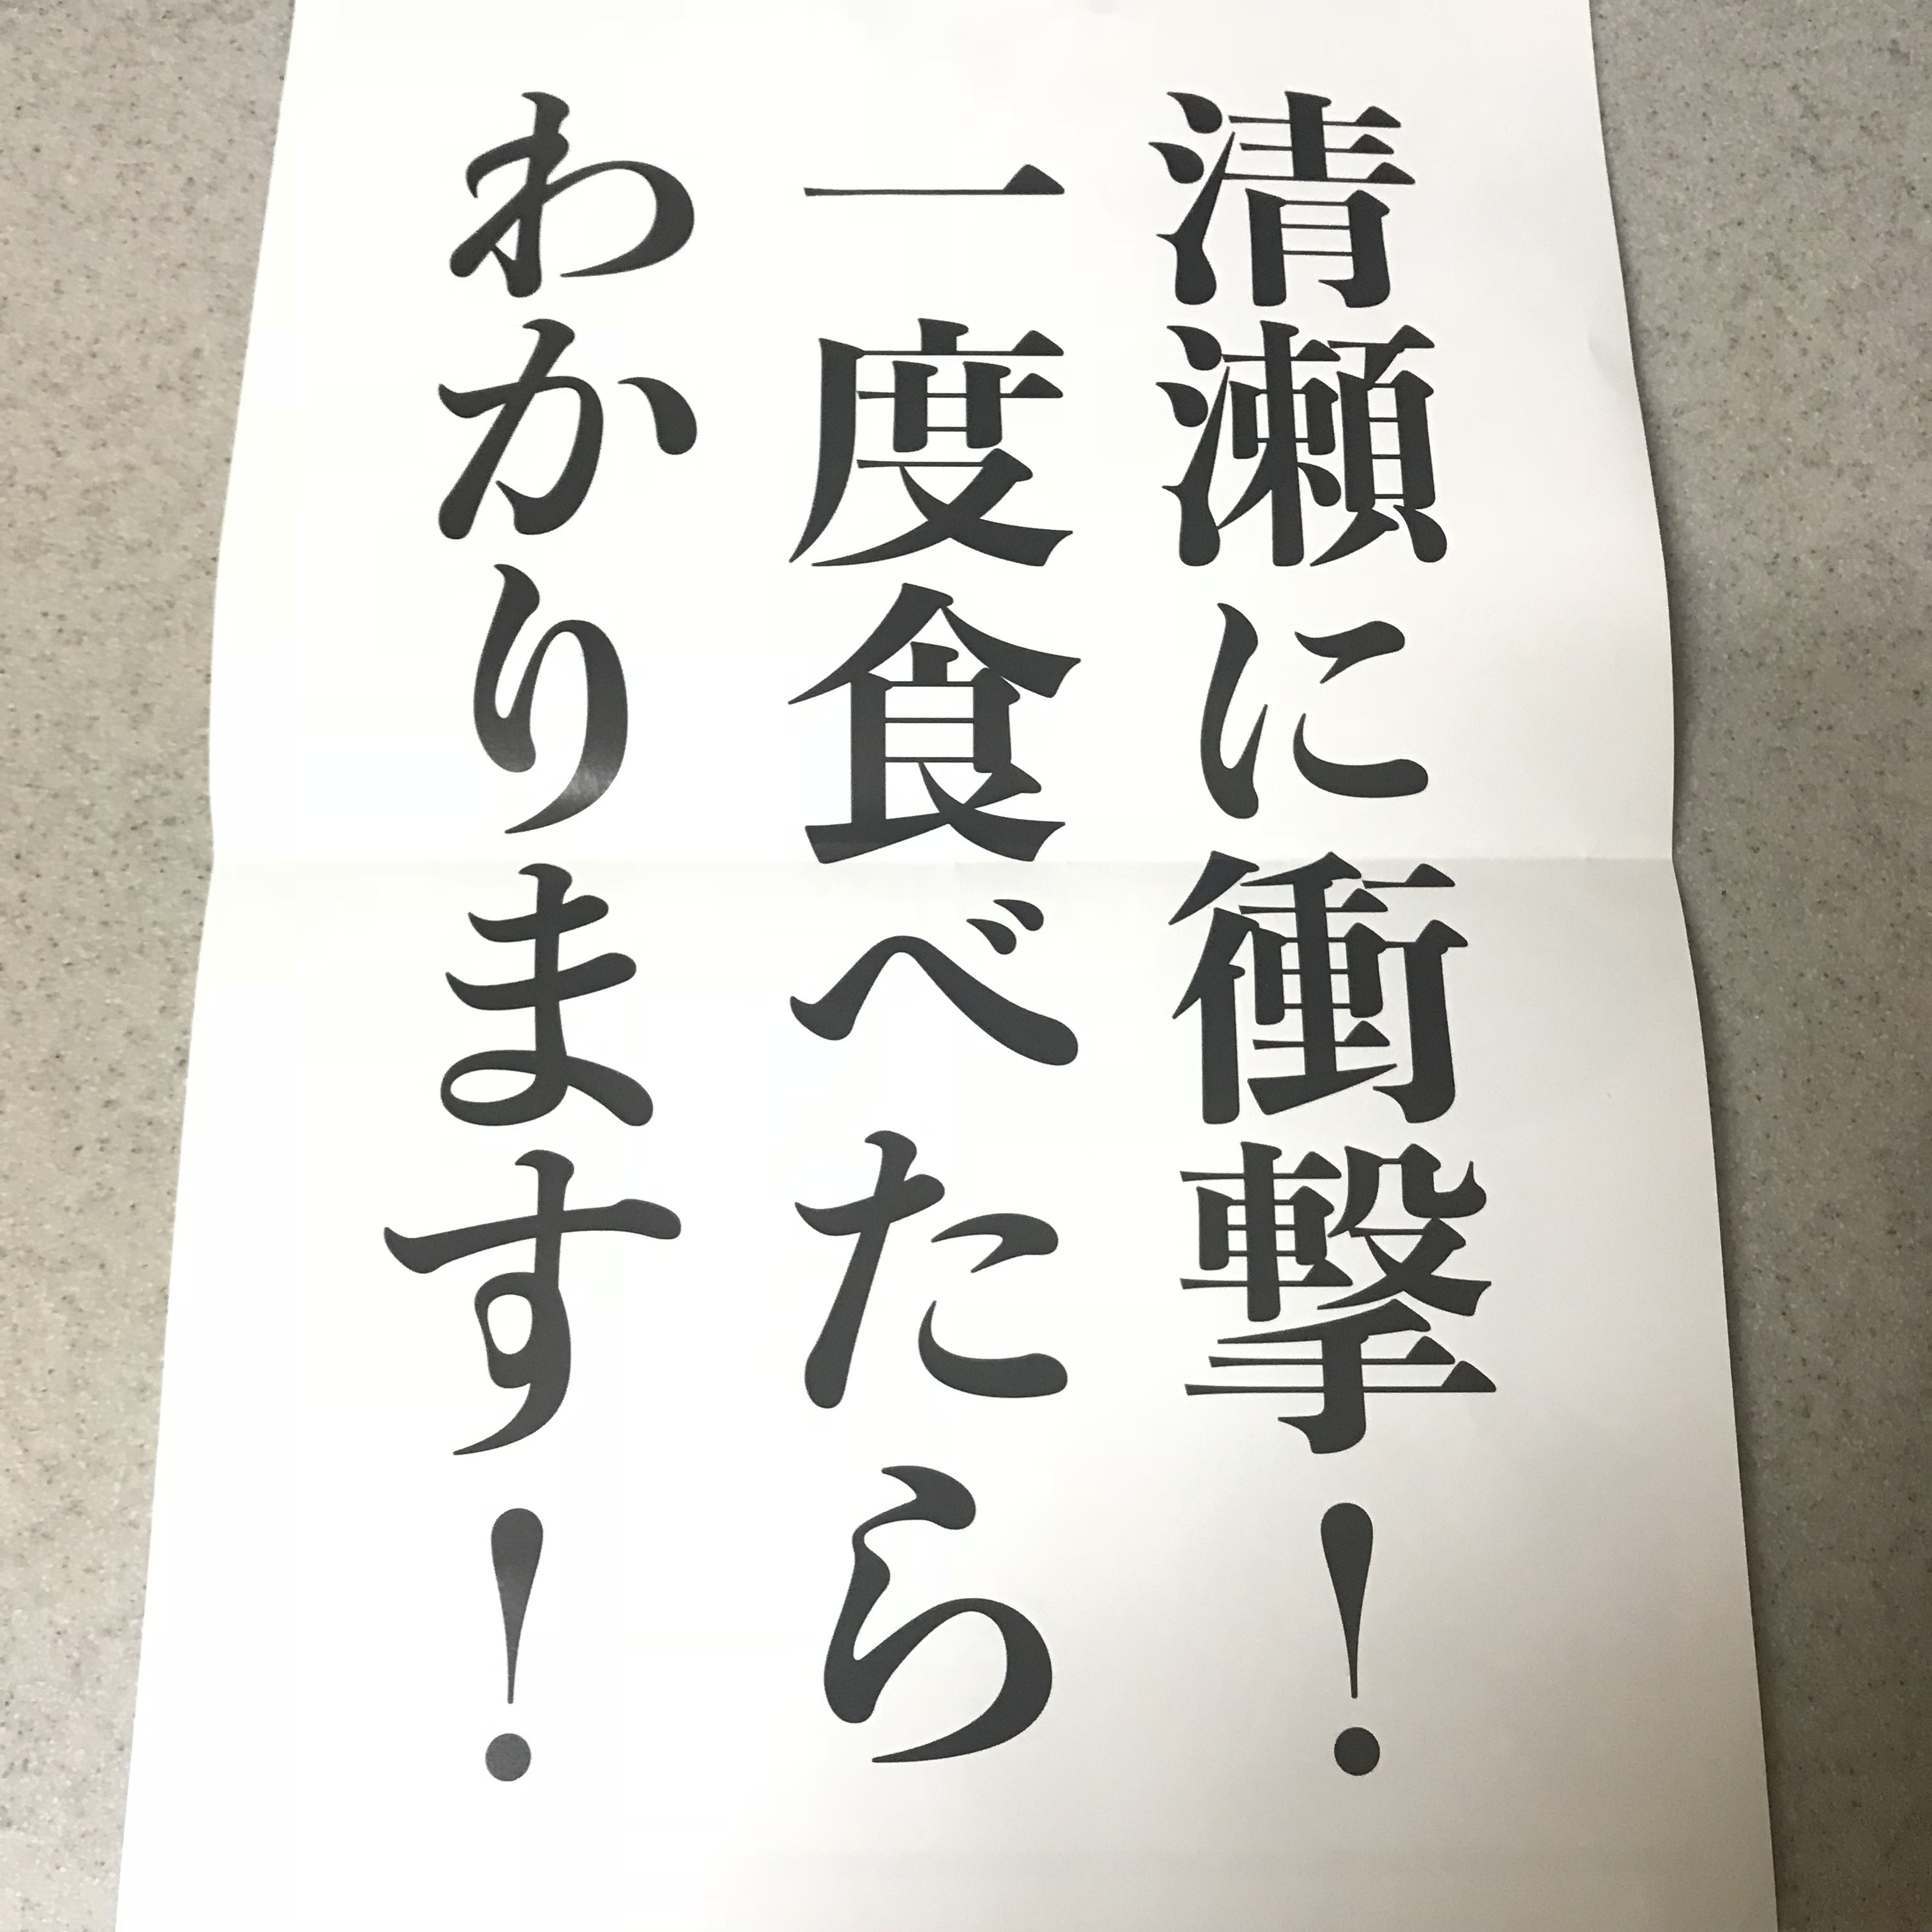 清瀬に衝撃！
一度食べたら
わかります！